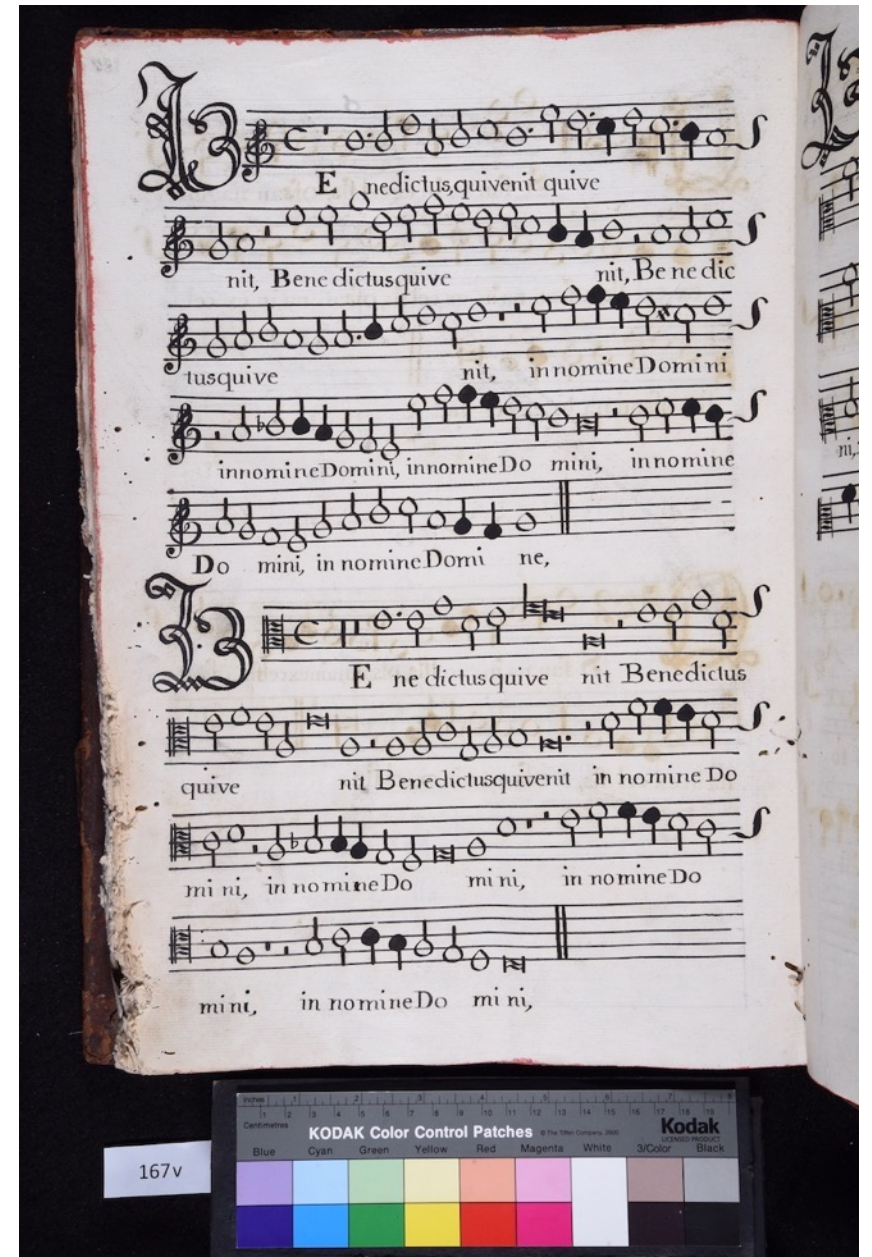 BE nedictus, quivenit quive
nit, Bene dictusquive nit, Be ne dic
tusquive nit, innomineDomini
innomineDomini, innomineDo mini, innomine
Do mini, in nomineDomi ne,
BE ne dictusquive nit Benedictus
quive nit Benedictusquivenit in nomineDo
mi ni, in nomineDo mi ni, in nomineDo
mini, in nomineDo mi ni,
ni,
167v
Inches 1 2 3 4 5 6 7 8
Centimetres 1 2 3 4 5 6 7 8 9 10 11 12 13 14 15 16 17 18 19
KODAK Color Control Patches © The Tiffen Company, 2000 Kodak
LICENSED PRODUCT
Blue Cyan Green Yellow Red Magenta White 3/Color Black